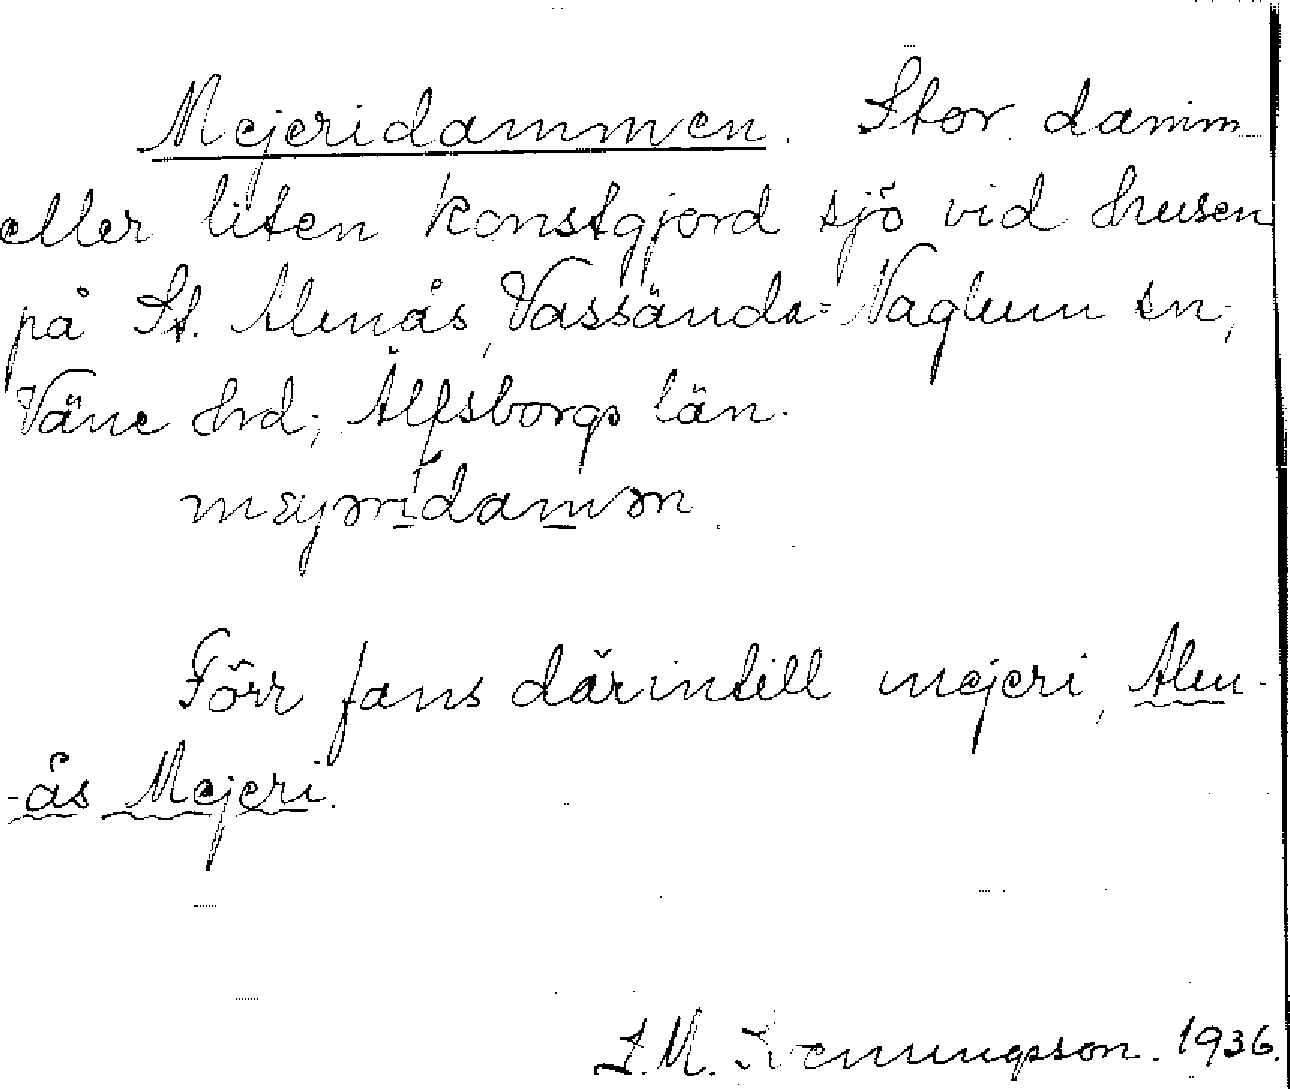 Mejeridammen. Stor damm
eller liten konstgjord sjö vid husen
på St. Alenås, Vassända-Naglum sn;
Väne hrd; Älfsborgs län.
mɛyəridamən.
Förr fans därintill mejeri, Alen-
-ås Mejeri.
1936.